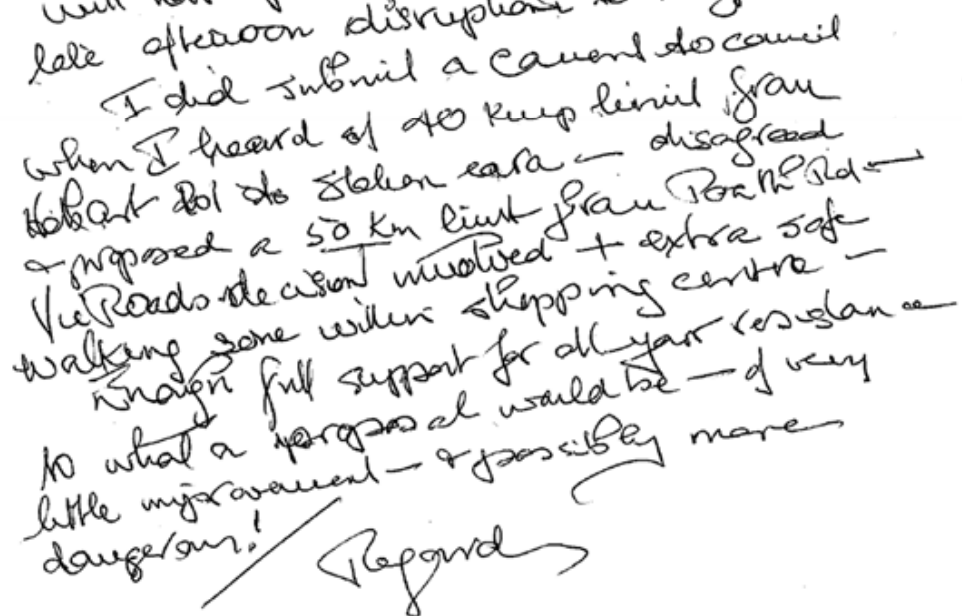 will not
late afternoon disruptions
I did submit a comment to council
when I heard of 40 kmp limit from
Hobart Rd to station cara — disagreed
& proposed a 50 km limit from Poath Rd —
VicRoads decision involved + extra safe
walking zone within shopping centre —
Enough full support for all your resistance
to what a proposal would be — of very
little improvement — & possibly more
dangerous!
Regards